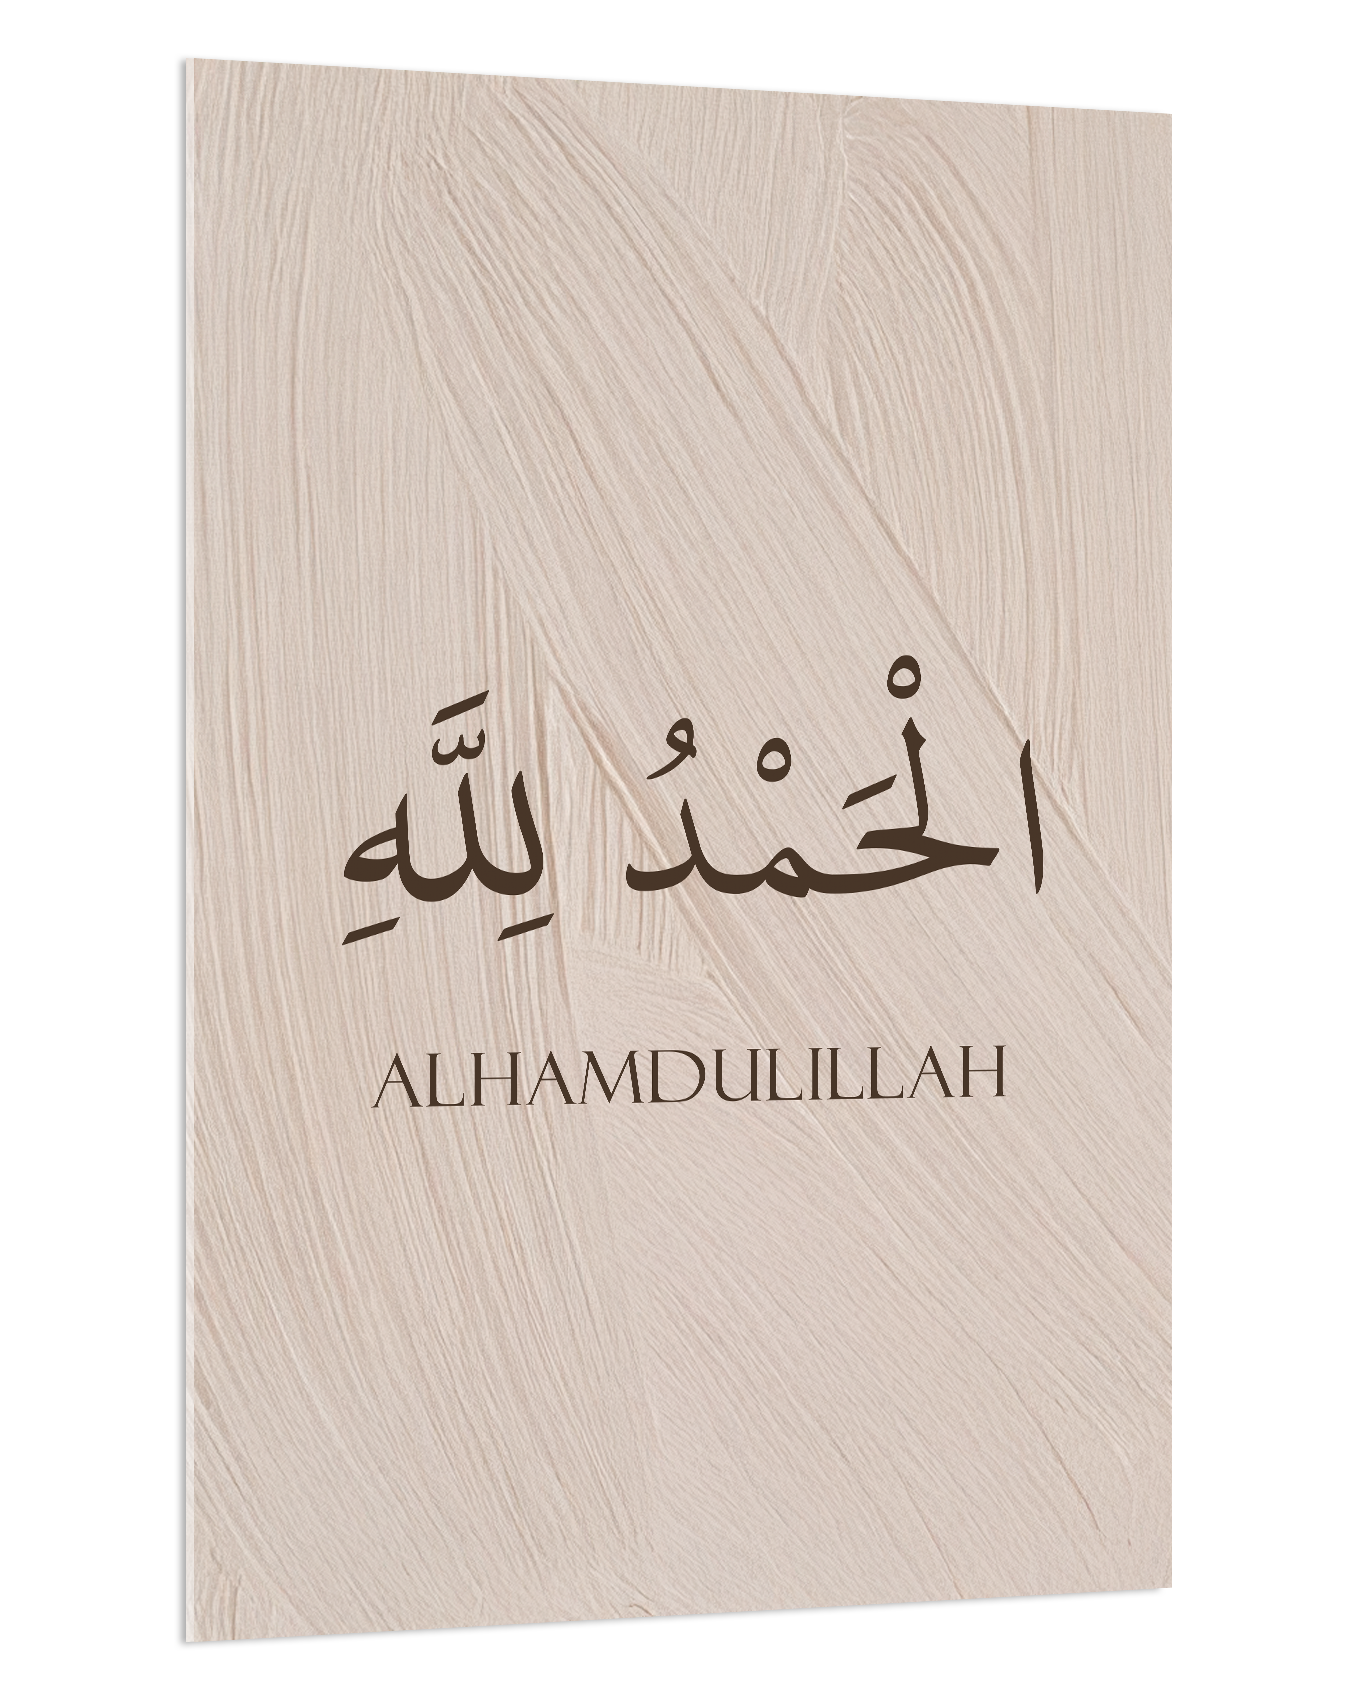 الْحَمْدُ لِلَّهِ
ALHAMDULILLAH